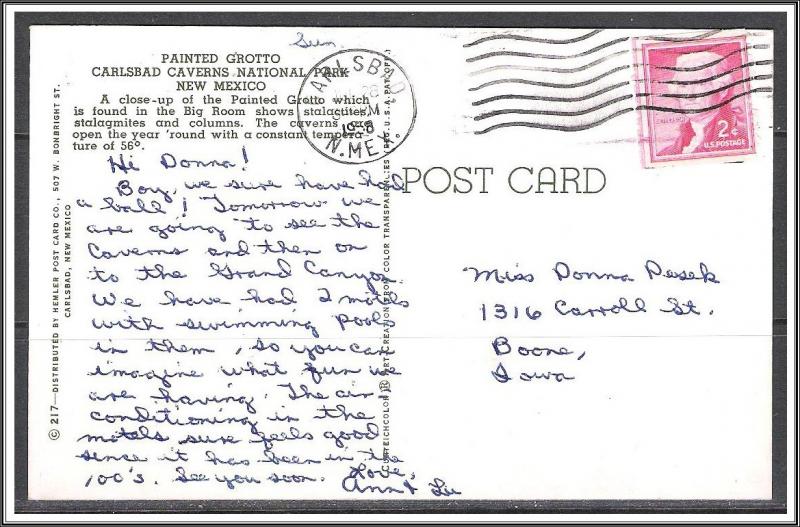 Sun.
PAINTED GROTTO
CARLSBAD CAVERNS NATIONAL PARK
NEW MEXICO
A close-up of the Painted Grotto which
is found in the Big Room shows stalactites,
stalagmites and columns. The caverns are
open the year 'round with a constant tempera-
ture of 56°.
Hi Donna!
Boy, we sure have had
a ball! Tomorrow we
are going to see the
Caverns and then on
to the Grand Canyon
We have had 2 motels
with swimming pools
in them, so you can
imagine what fun we
are having. The air-
conditioning in the
motels sure feels good
since it has been in the
100's. See you soon. Love,
Ann & Liz
© 217—DISTRIBUTED BY HEMLER POST CARD CO., 507 W. BONBRIGHT ST.
CARLSBAD, NEW MEXICO
CURTEICHCOLOR ® ART-CREATION FROM COLOR TRANSPARENCIES (REG. U.S.A. PAT. OFF.)
CARLSBAD,
28
PM
1958
N. MEX.
2¢
U.S. POSTAGE
POST CARD
Miss Donna Pesek
1316 Carroll St.
Boone,
Iowa